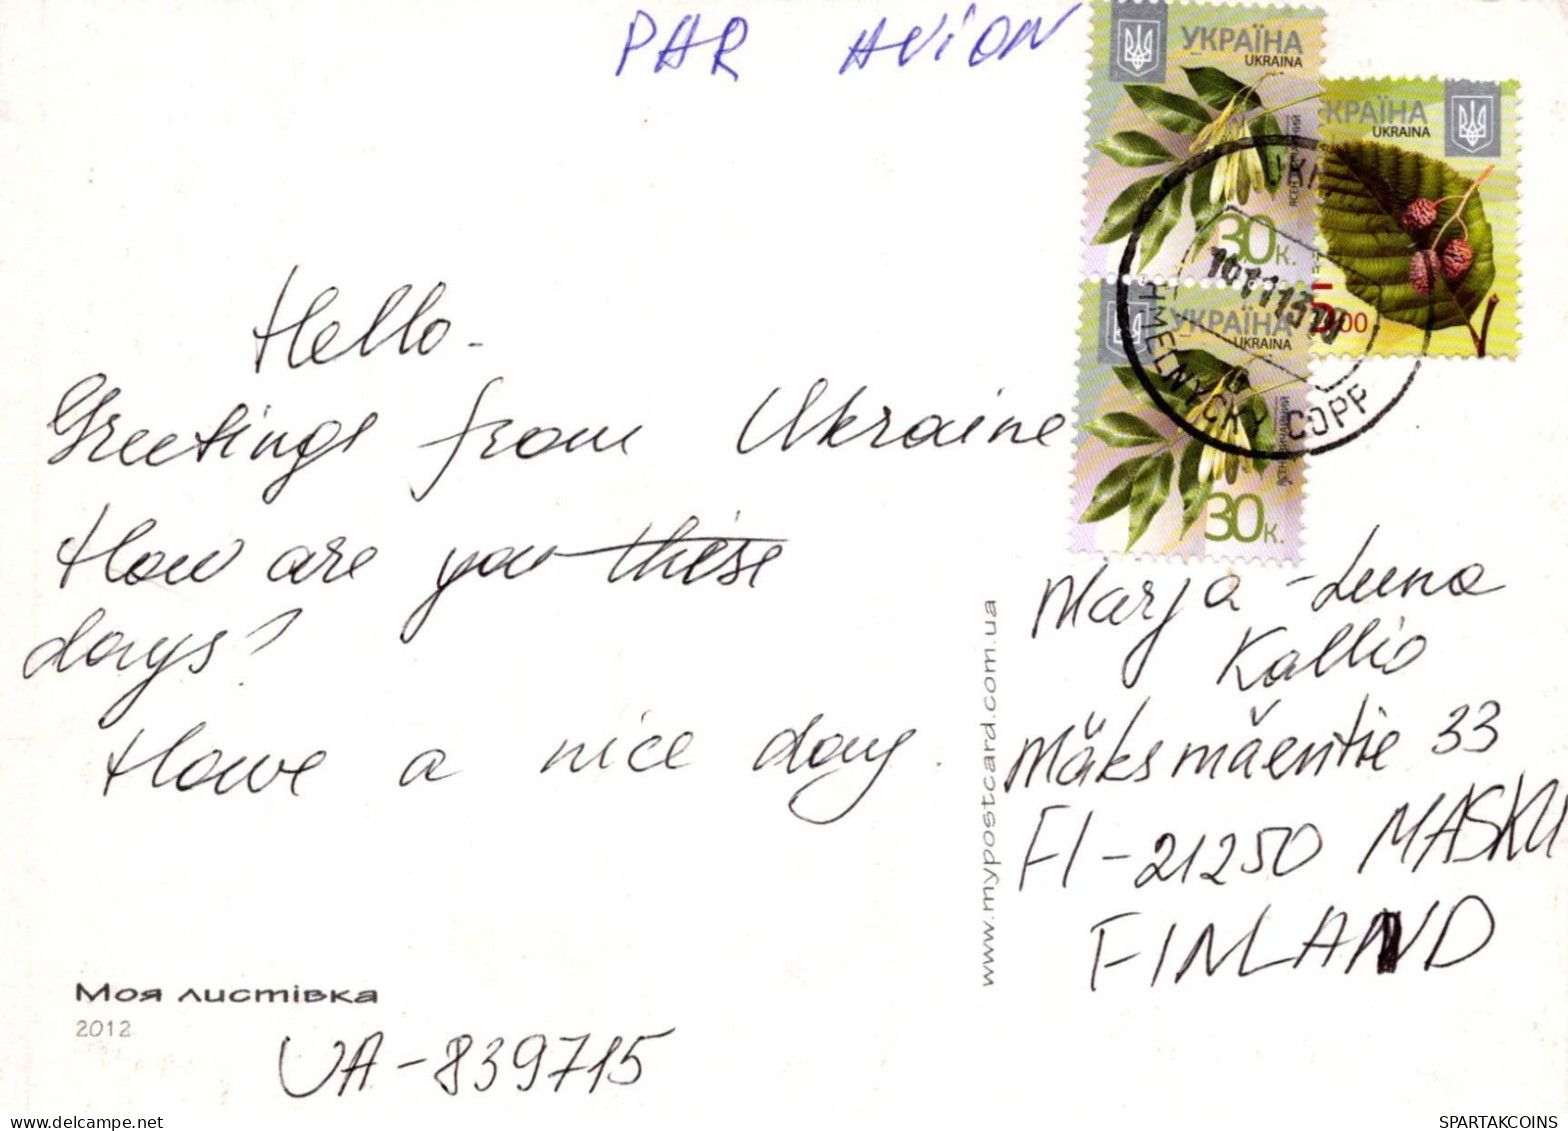 PAR AViON
УКРАЇНА
UKRAINA
30к.
КРАЇНА
UKRAINA
5.00
УКРАЇНА
UKRAINA
30к.
HMELNYCKY COPP
Hello-
Greetings from Ukraine
How are you these
days?
Have a nice day.
Marja-Leena
Kallio
Mäksmäentie 33
FI-21250 MASKU
FINLAND
www.mypostcard.com.ua
Моя листівка
2012
UA-839715
SPARTAKCOINS